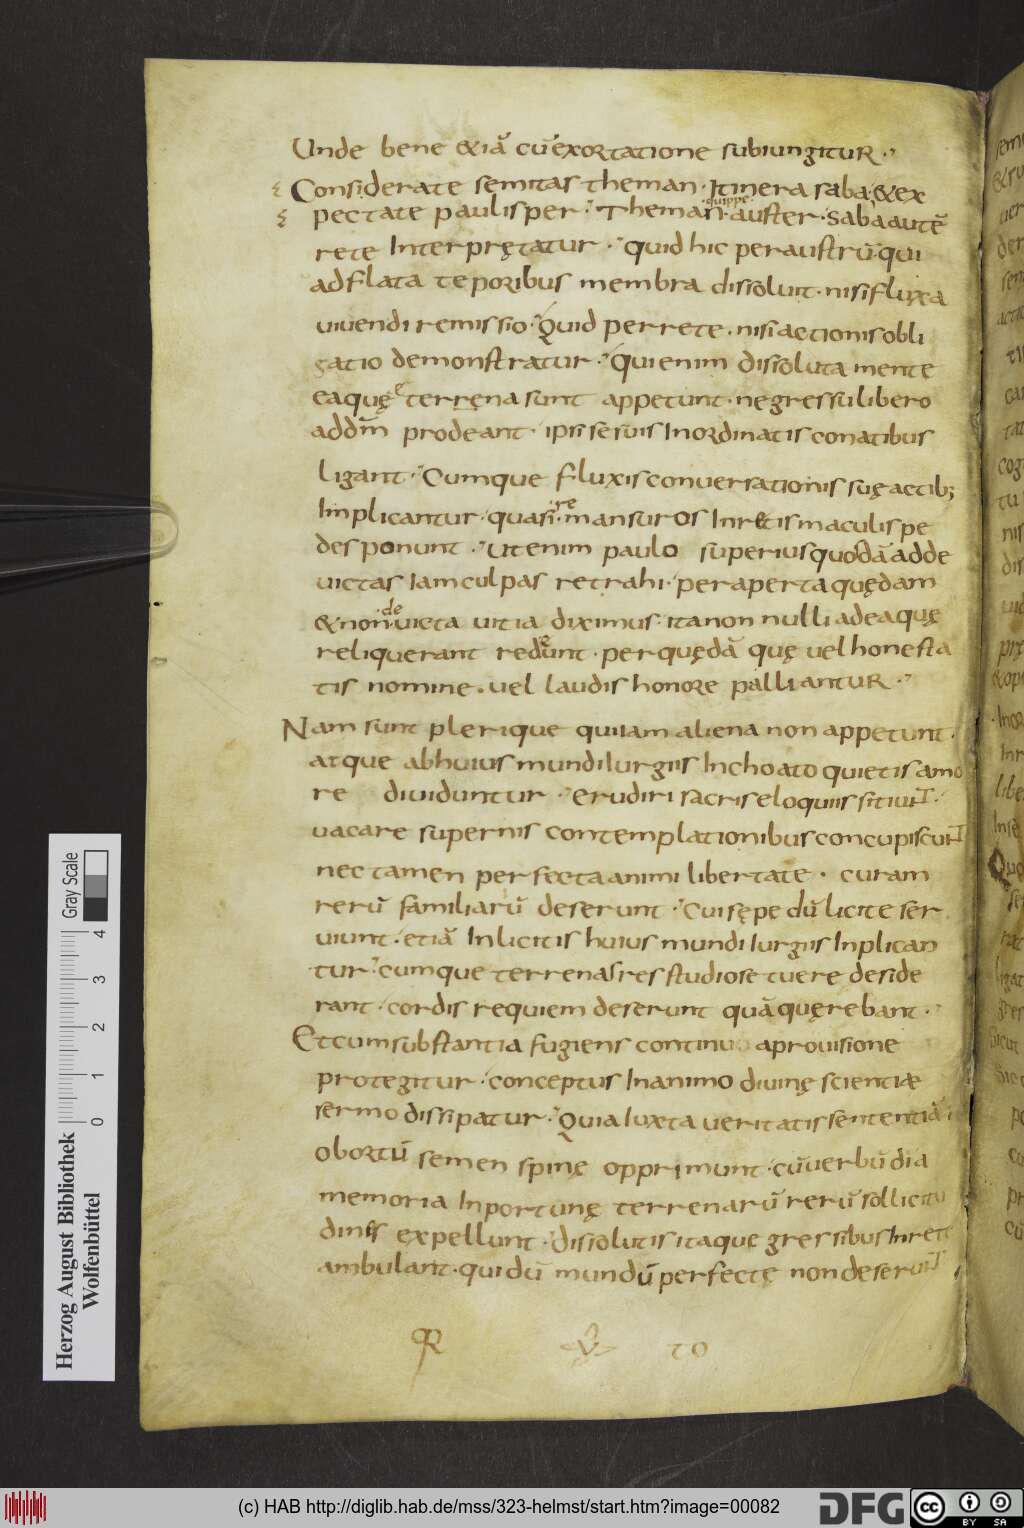 Unde bene &iā cū exortatione subiungitur·
Considerate semitas theman· Itinera saba· &ex
pectate paulisper· Theman· quippe auster· saba autē
rete Interprętatur· quid hic per austrū qui
adflata teporibus membra dissoluit· nisi fluxa
uiuendi remissio· Quid per rete· nisi actionis obli
gatio demonstratur· Qui enim dissoluta mente
ea quę ęterrena sunt appetunt· ne gressu libero
ad dm̄ prodeant· ipsi se suis Inordinatis conatibus
ligant· Cumque fluxis conuersationis suę actib;
Implicantur· quasi mansuros In retis maculis pe
des ponunt· Ut enim paulo superius quosdā adde
uictas Iam culpas retrahi· per aperta quędam
& non deuicta uitia diximus· ita non nulli ad ea quę
reliquerant redeunt· per quędā quę uel honesta
tis nomine· uel laudis honore palliantur·
Nam sunt plerique qui iam aliena non appetunt·
atque ab huius mundi Iurgiis Inchoato quietis amo
re diuiduntur· erudiri sacris eloquiis sitiuNT·
uacare supernis contemplationibus concupiscuNT
nec tamen perfecta animi libertate· curam
rerū familiarū deserunt· Cui sępe dū licite ser
uiunt· etiā Inlicitis huius mundi Iurgiis Inplican
tur· cumque terrenas res studiose tuere deside
rant· cordis requiem deserunt quā quęrebant·
Et cum substantia fugiens continu aprouisione
protegitur· conceptus In animo diuinę scientiæ
sermo dissipatur· Quia Iuxta ueritatis sententiā
obortū semen spinę opprimunt· cū uerbū dī a
memoria Inportunę terrenarū rerū sollicitu
dines expellunt· dissolutis itaque gressibus In rete
ambulant· qui dū mundū perfectę non deseruNT
qR to
Gray Scale
0 1 2 3 4
Herzog August Bibliothek
Wolfenbüttel
(c) HAB http://diglib.hab.de/mss/323-helmst/start.htm?image=00082
DFG
cc BY SA